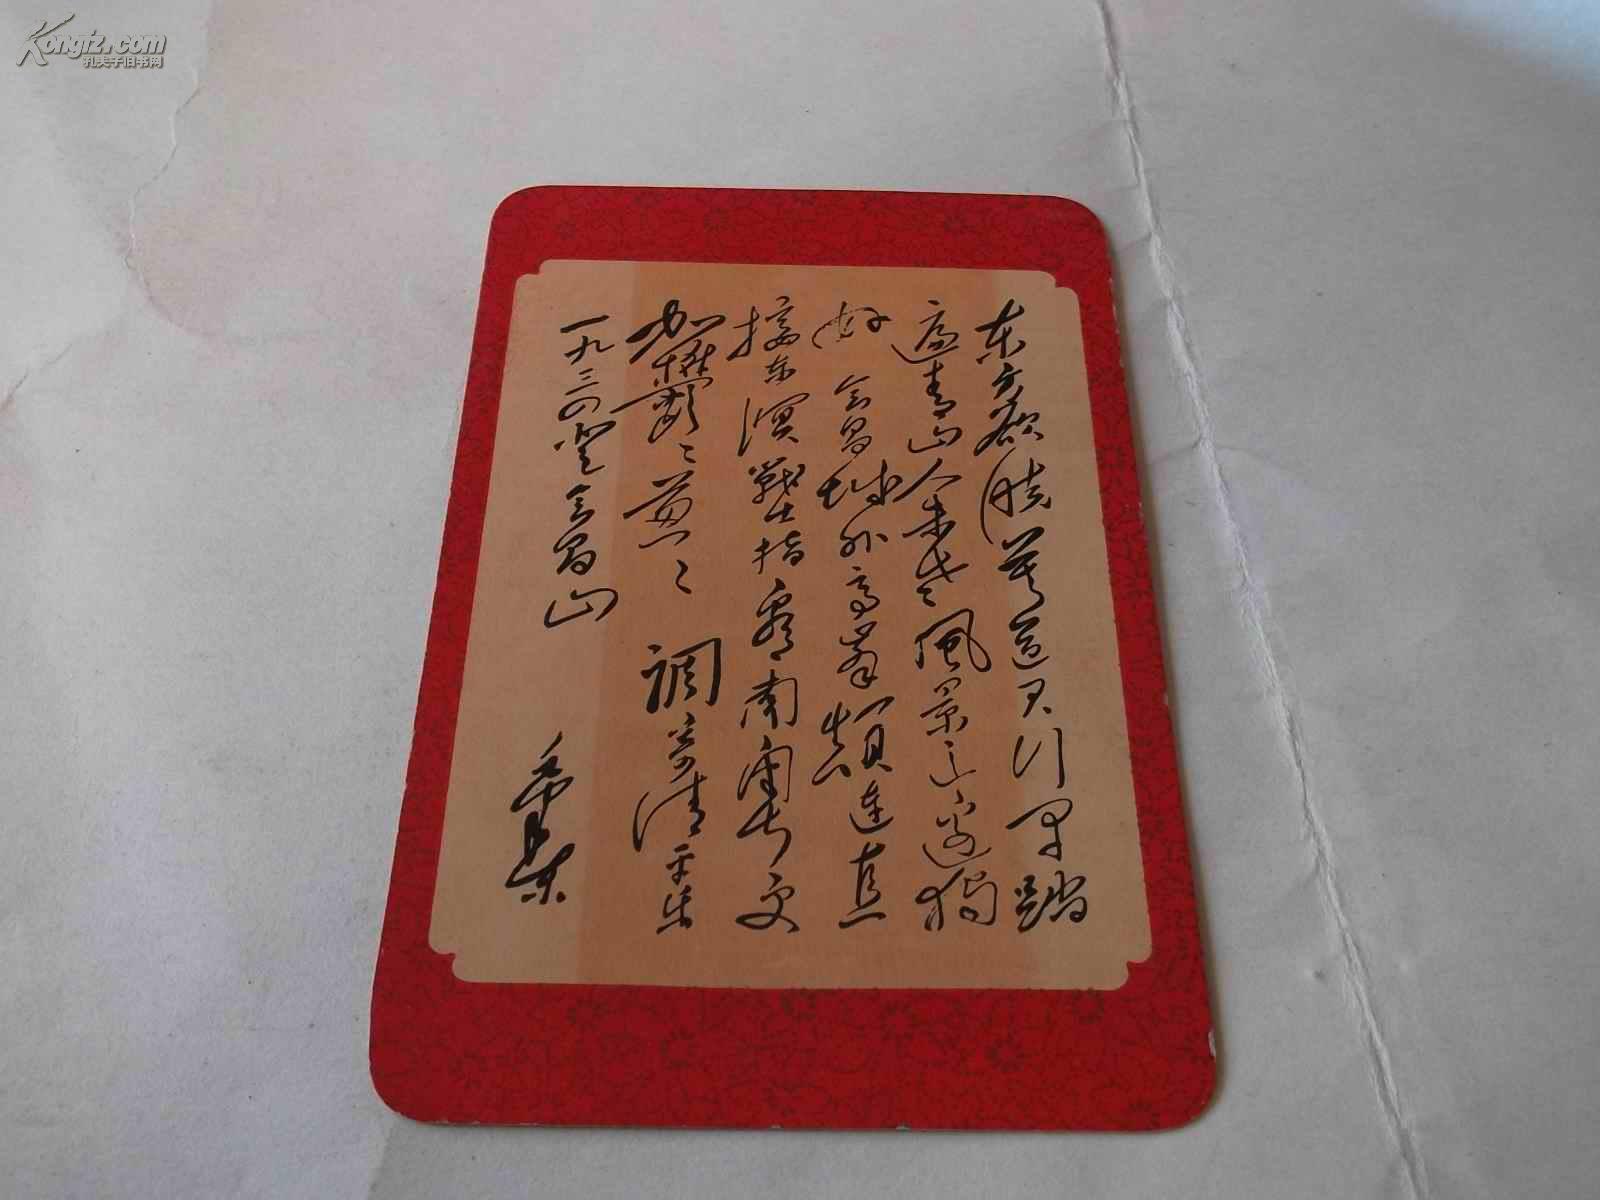 Kongfz.com
孔夫子旧书网
东方欲曉莫道君行早踏
遍青山人未老風景这边獨
好 会昌城外高峯顛連直
接东溟戰士指看南粤更
加鬱々葱々 調寄清平乐
一九三四登会昌山 毛泽东